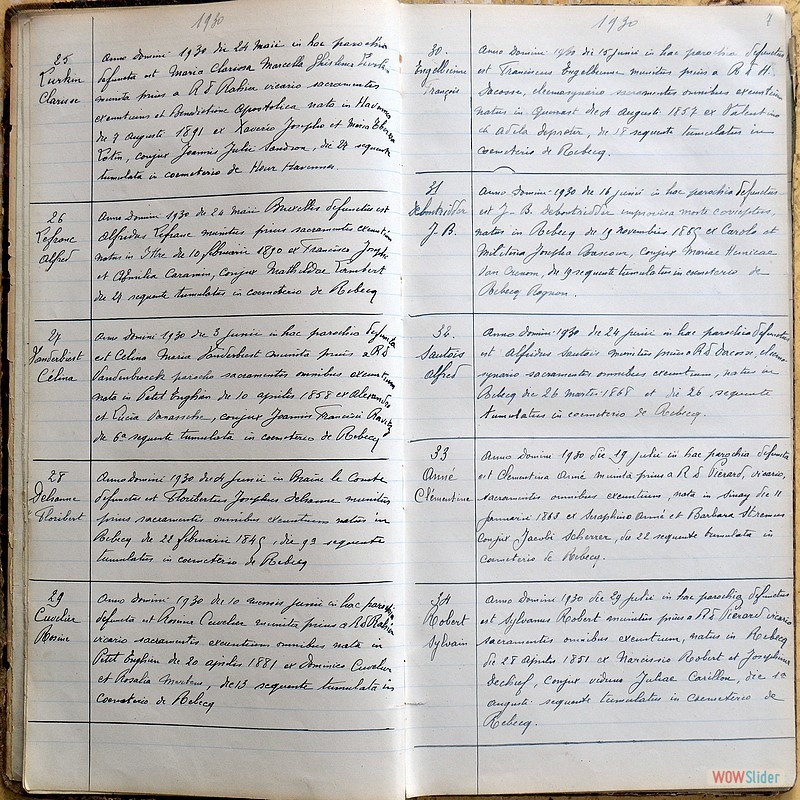 1930
25
Lurkin
Clarisse
Anno Domini 1930 die 24 Maii in hac parochia
defuncta est Maria Clarissa Marcella Ghislena Lurkin
munita prius a R D Rahier vicario sacramentis
exeuntium et Benedictione Apostolica nata in
die 7 Augusti 1891 ex Xaverio Josepho et Maria
conjux Joannis Julii die 27 sequente
tumulata in coemeterio de
26
Lefranc
Alfred
Anno Domini 1930 de 24 Maii Bruxelles defunctus est
Alfredus Lefranc munitus prius sacramentis
natus in Ittre de 10 februarii 1890 ex Francisco Josepho
et Caramin, conjux Mathildae
die 27 sequente tumulatus in coemeterio de Rebecq
27
Vanderbiest
Célina
Anno Domini 1930 die 3 Junii in hac parochia defuncta
est Celina Maria Vanderbiest munita prius a R D
Vandenbroeck parocho sacramentis omnibus exeuntium
nata in Petit Enghien die 10 aprilis 1858 ex Alexandro
et Lucia conjux Joannis Francisci
die 6ª sequente tumulata in coemeterio de Rebecq
28
Delhanne
Floribert
Anno domini 1930 die 4 Junii in Braine le Comte
defunctus est Floribertus Josephus Delhanne munitus
prius sacramentis omnibus exeuntium natus in
Rebecq die 22 februarii, die 9ª sequente
tumulatus in coemeterio de Rebecq
29
Cuvelier
Rosine
Anno Domini 1930 die 10 mensis junii in hac parochia
defuncta est Rosine Cuvelier munita prius a R D Rahier
vicario sacramentis exeuntium omnibus nata in
Petit Enghien die 20 aprilis 1881 ex Dominico Cuvelier
et Rosalia Mertens, die 13 sequente tumulata in
Coemeterio de Rebecq
1930
7
30.
Engelbienne
François
Anno Domini 1930 die 15 Junii in hac parochia defunctus
est Franciscus Engelbienne munitus prius a R D H.
Dacosse, eleemosynario sacramentis omnibus exeuntium
natus in Quenast die 4 Augusti 1857 ex Valentino
et Adela, die 18 sequente tumulatus in
coemeterio de Rebecq.
31
Debontridder
J. B.
Anno Domini 1930 die 16 junii in hac parochia defunctus
est J- B. Debontridder improvisa morte correptus,
natus in Rebecq die 19 novembris ex Carolo et
Josepha, conjux Mariae
Van, die 19 sequente tumulatus in coemeterio de
Rebecq Rognon.
32.
Sautois
Alfred
Anno Domini 1930 die 24 junii in hac parochia defunctus
est Alfredus Sautois munitus prius a R D Dacosse, eleemo-
synario sacramentis omnibus exeuntium, natus in
Rebecq die 26 martis 1868 et die 26 sequente
tumulatus in coemeterio de Rebecq.
33
Anné
Clémentine
Anno Domini 1930 die 19 julii in hac parochia defuncta
est Clementina Anné munita prius a R D Piérard, vicario,
sacramentis omnibus exeuntium, nata in Sinay die 11
januarii 1863 ex Seraphino Anné et Barbara
conjux Jacobi Scherrer, die 22 sequente tumulata in
coemeterio de Rebecq.
34
Robert
Sylvain
Anno Domini 1930 die 29 julii in hac parochia defunctus
est Sylvanus Robert munitus prius a R D Piérard vicario
sacramentis omnibus exeuntium, natus in Rebecq
die 28 Aprilis 1851 ex Narcisso Robert et Josephina
conjux viduus Juliae Carillon, die 1ª
augusti sequente tumulatus in Coemeterio de
Rebecq.
WOWSlider